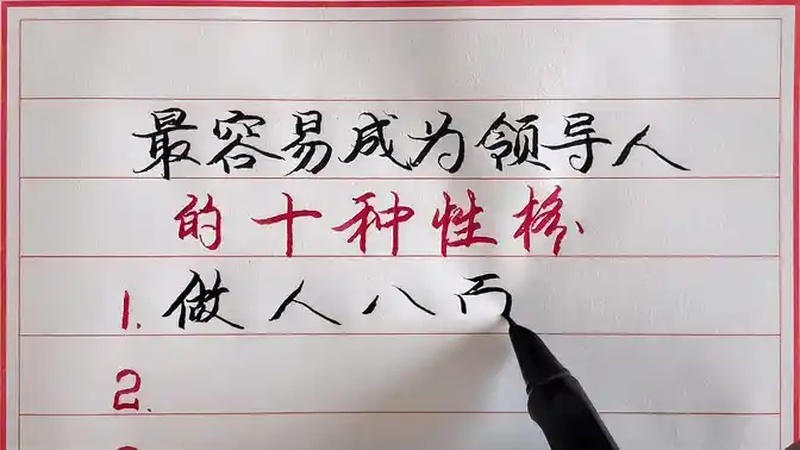 最容易成为领导人
的十种性格
1. 做人八
2.